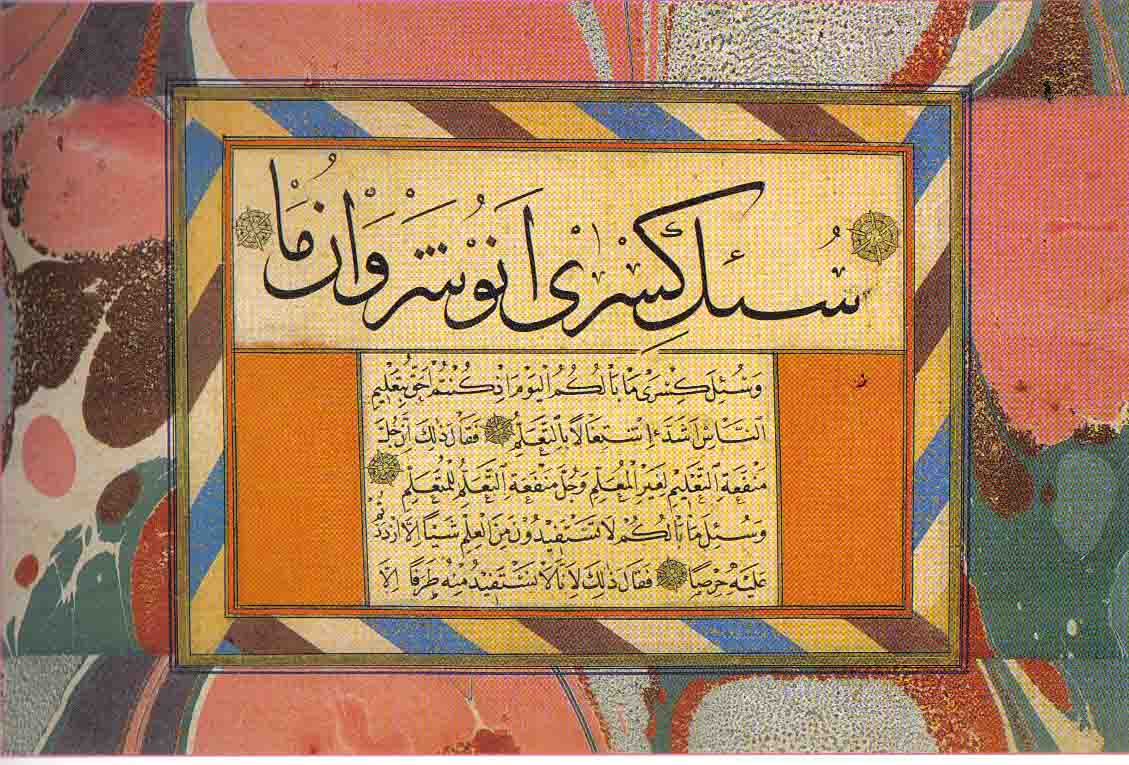 سُئِل كِسْرٰى اَنَوُشَرْ وَانْ مَا
وَسُئِلَ كِسْرٰى مَا بَالُكُمُ الْيَوْمَ اِذْ كُنْتُمْ اَحَقَّ بِتَعْلِيمِ
النَّاسِ اَشَدَّ اِشْتِغَالًا بِالتَّعَلُّمِ فَقَالَ ذٰلِكَ اَنَّ جُلَّ
مَنْفَعَةِ التَّعْلِيمِ لِغَيْرِ الْمُعَلِّمِ وَجُلَّ مَنْفَعَةِ التَّعَلُّمِ لِلْمُتَعَلِّمِ
وَسُئِلَ مَا بَالُكُمْ لَا تَسْتَفِيْدُوْنَ مِنَ الْعِلْمِ شَيْئًا اِلَّا ازْدَدْتُمْ
عَلَيْهِ حِرْصًا فَقَالَ ذٰلِكَ لِاَنَّا لَا نَسْتَفِيْدُ مِنْهُ طَرَفًا اِلَّا